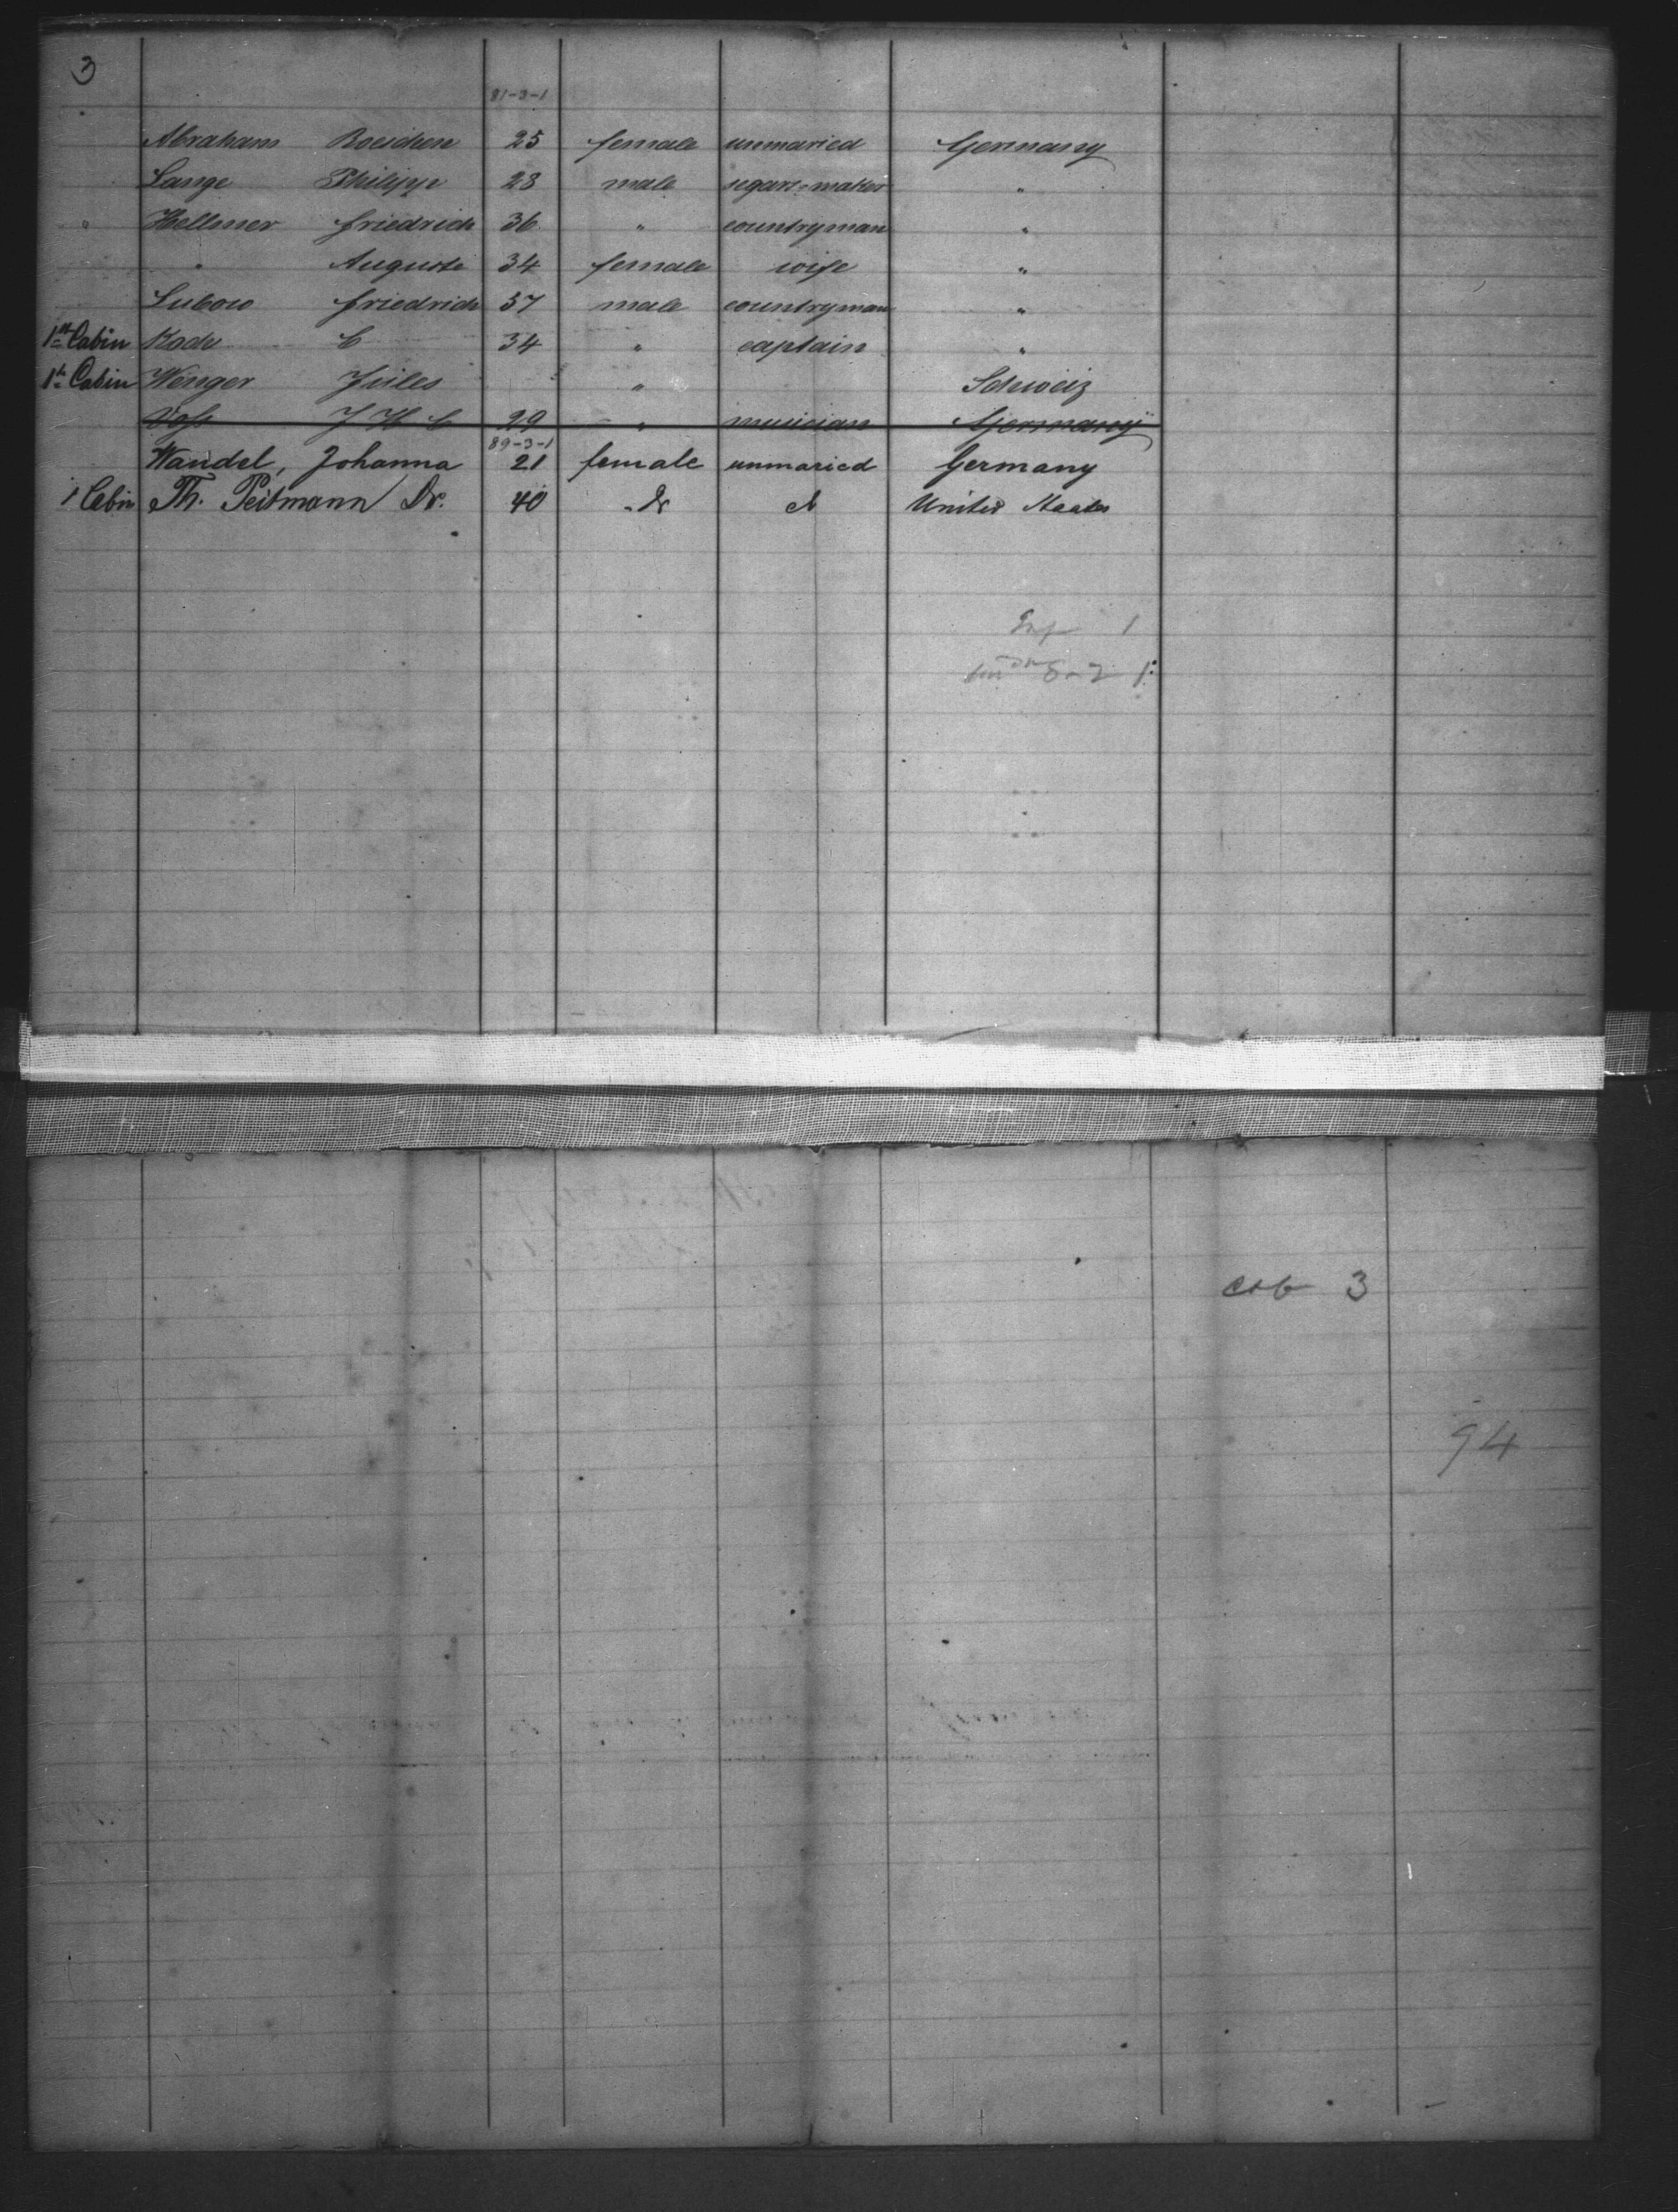 3
81-3-1
Abraham Roeschen 25 female unmaried Germany
Lange Philipp 28 male segars-maker "
" Hellmer Friedrich 36 " countryman "
" Auguste 34 female wife "
Lubow Friedrich 37 male countryman "
1st Cabin Kode C 34 " captain "
1st Cabin Wenger Jules " Schweiz
Voss J H C 29 " musician Germany
89-3-1
Wandel, Johanna 21 female unmaried Germany
1 Cabin Th. Peitmann Dr. 40 United Staates
1
8-2 1
cab 3
94